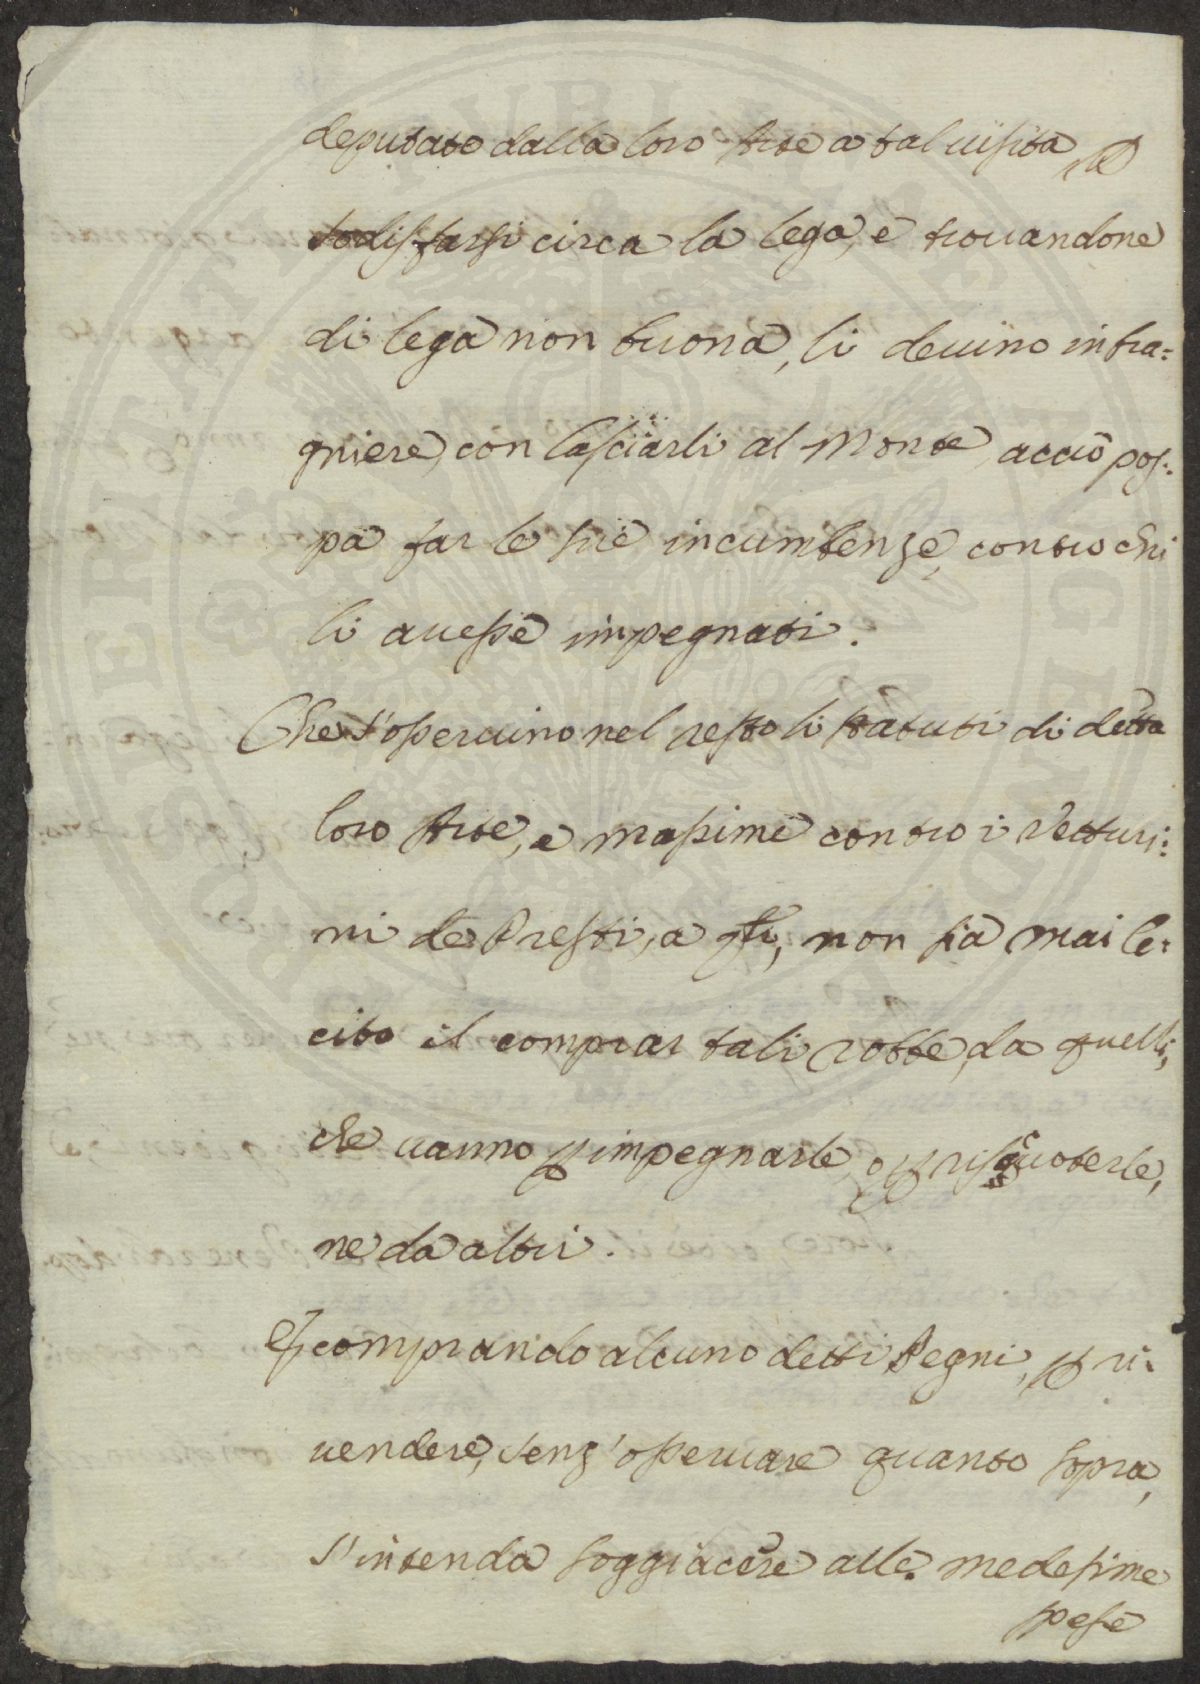 deputato dalla loro Arte a tal visita, e
sodisfarsi circa la lega, e trovandone
di lega non buona, li devino infra=
gniere, con lasciarli al Monte, acciò pos=
sa far le sue incumbenze, contro chi
li avesse impegnati.
Che s'osservino nel resto li statuti di detta
loro Arte, e massime contro i Vetturi=
ni de Presti, a qli, non sia mai le=
cito il comprar tali robbe, da quelli,
che vanno p impegnarle, o p risquoterle,
ne da altri.
E comprando alcuno detti Pegni, p ri=
vendere, senz'osservare quanto sopra,
s'intenda soggiacere alle medesime
pese